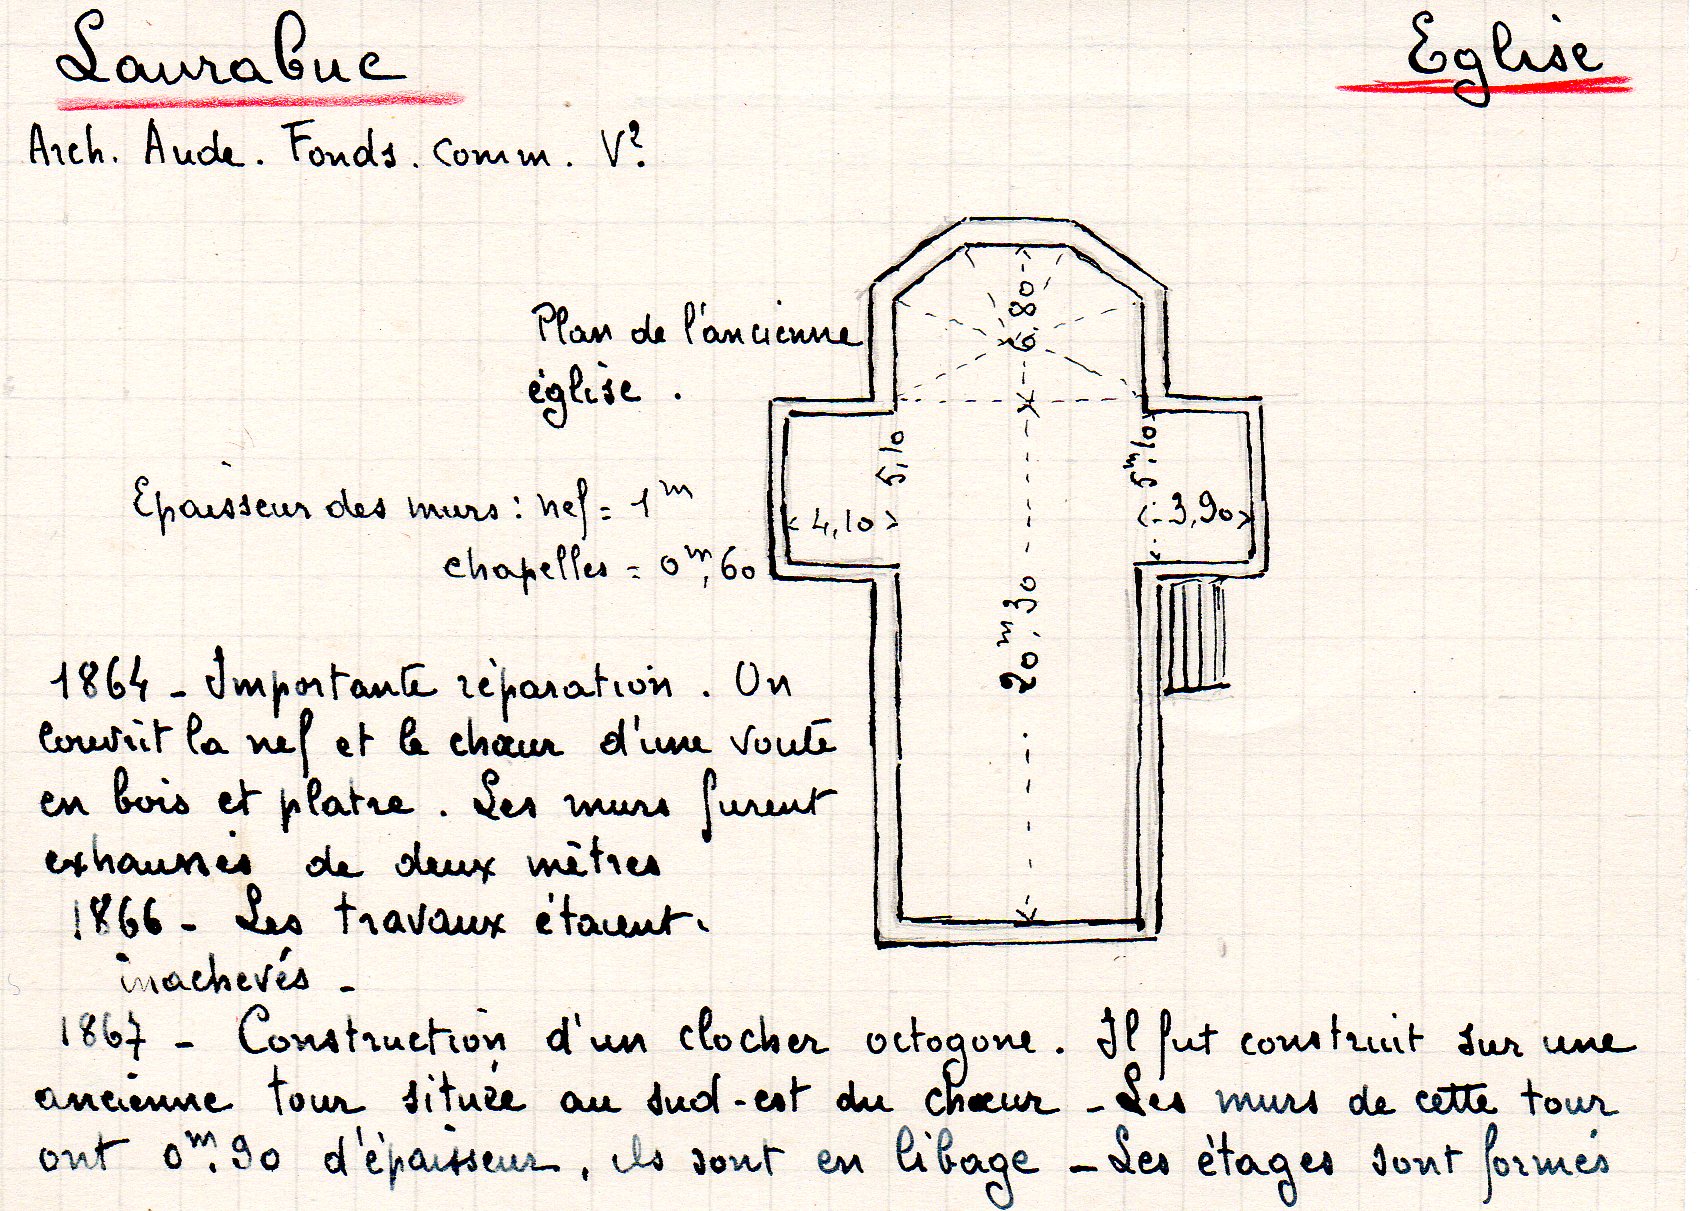 Laurabuc
Eglise
Arch. Aude. Fonds. comm. V?.
Plan de l'ancienne
église.
6,80
5,10
5m,10
4,10
3,90
20m,30
Epaisseur des murs : nef = 1m
chapelles = 0m,60
1864 - Importante réparation. On
couvrit la nef et le chœur d'une voute
en bois et platre. Les murs furent
exhaussés de deux mètres
1866 - Les travaux étaient.
inachevés -
1867 - Construction d'un clocher octogone. Il fut construit sur une
ancienne tour située au sud-est du chœur - Les murs de cette tour
ont 0m.90 d'épaisseur, ils sont en libage - Les étages sont formés